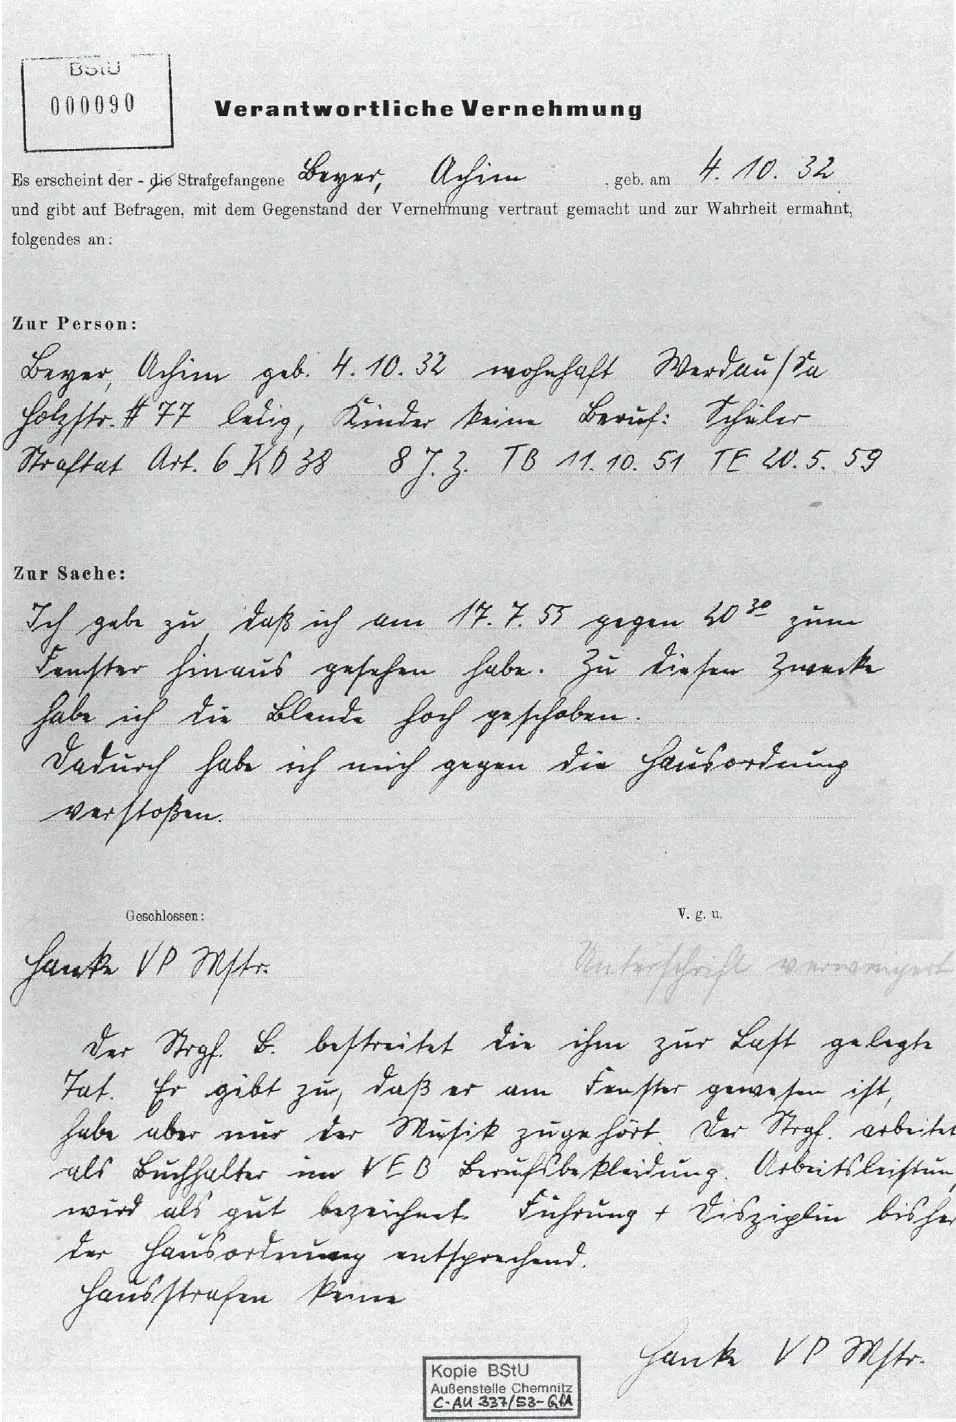 BStU
000090
Verantwortliche Vernehmung
Es erscheint der - die Strafgefangene Beyer, Achim , geb. am 4. 10. 32
und gibt auf Befragen, mit dem Gegenstand der Vernehmung vertraut gemacht und zur Wahrheit ermahnt,
folgendes an:
Zur Person:
Beyer, Achim geb. 4.10.32 wohnhaft Werdau/Sa
Holzstr. # 77 ledig, Kinder keine Beruf: Schüler
Straftat Art. 6 KD 38 8 J. Z. TB 11.10.51 TE 20.5.59
Zur Sache:
Ich gebe zu, daß ich am 17.7.55 gegen 20 30 zum
Fenster hinaus gesehen habe. Zu diesen Zwecke
habe ich die Blende hoch geschoben.
Dadurch habe ich mich gegen die Hausordnung
verstoßen.
Geschlossen: V. g. u.
Hanke VP Mstr. Unterschrift verweigert
Der Strgf. B. bestreitet die ihm zur Last gelegte
Tat. Er gibt zu, daß er am Fenster gewesen ist,
habe aber nur der Musik zugehört. Der Strgf. arbeitet
als Buchhalter im VEB Berufsbekleidung. Arbeitsleistun
wird als gut bezeichnet. Führung + Disziplin bisher
der Hausordnung entsprechend.
Hausstrafen keine
Hanke VP Mstr.
Kopie BStU
Außenstelle Chemnitz
C-AU 337/53-GfA